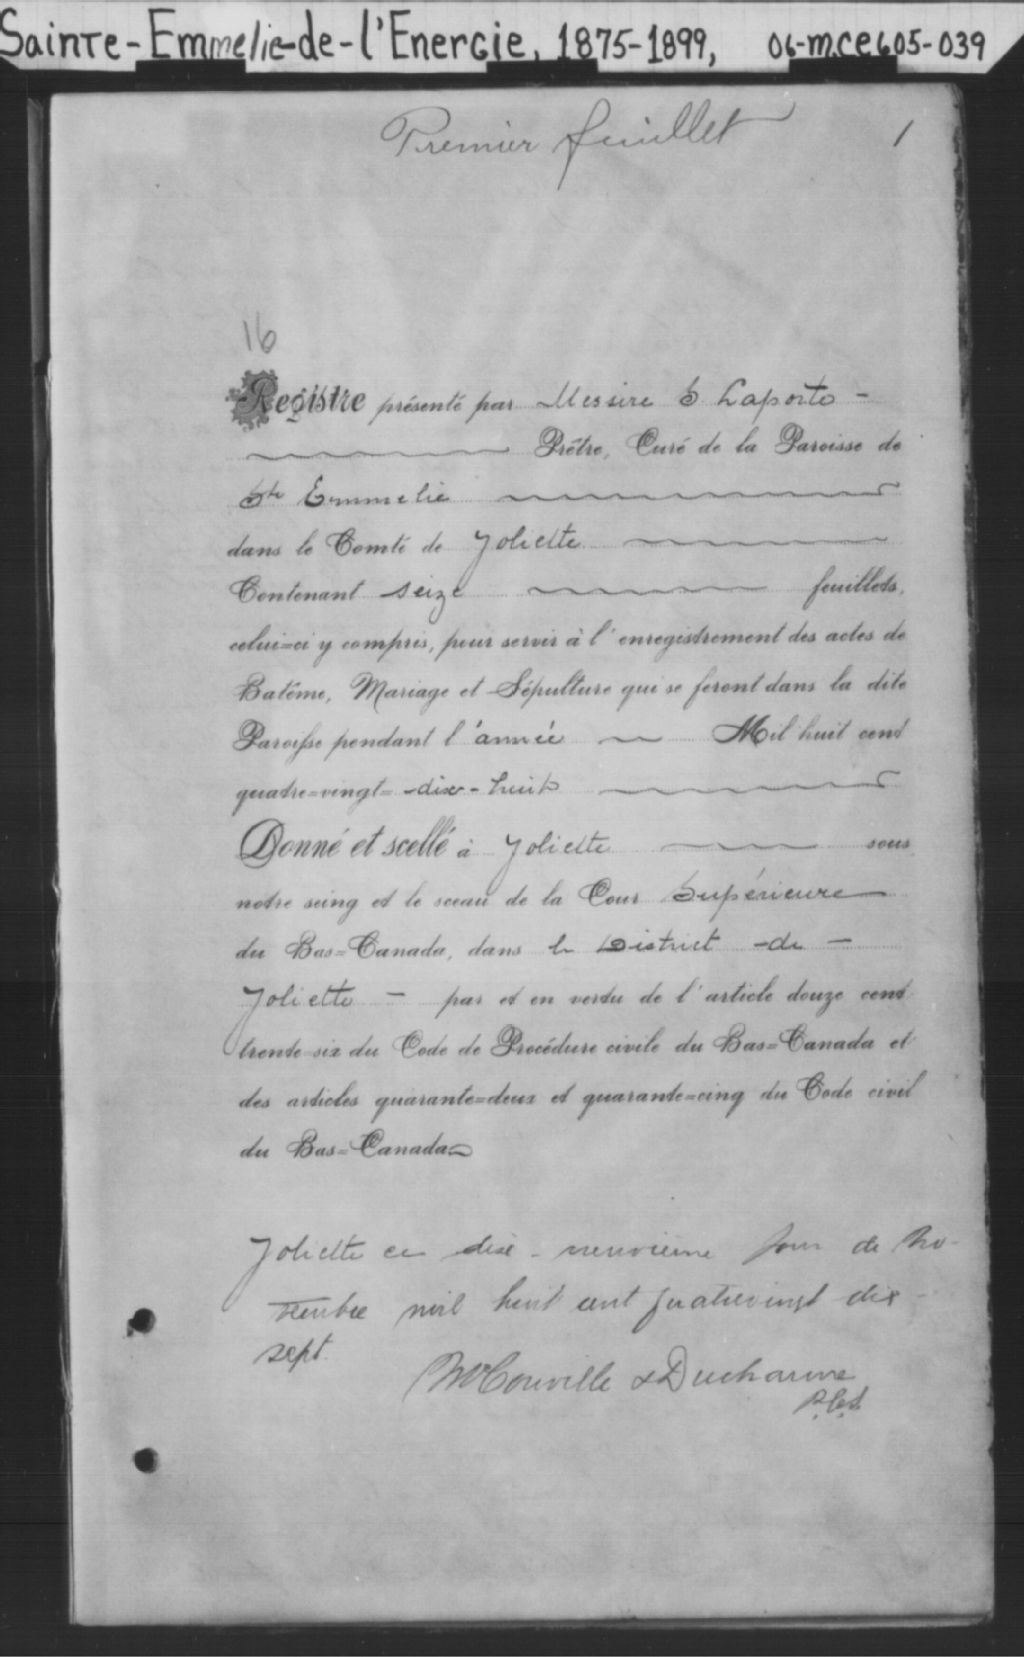 Sainte-Emmelie-de-l'Energie, 1875-1899, 06-M.CE605-039
Premier feuillet 1
16
Registre présenté par Messire S Laporte -
Prêtre, Curé de la Paroisse de
Ste Emmelie
dans le Comté de Joliette
Contenant seize feuillets,
celui-ci y compris, pour servir à l'enregistrement des actes de
Batême, Mariage et Sépulture qui se feront dans la dite
Paroisse pendant l'année Mil huit cent
quatre-vingt-dix-huit
Donné et scellé à Joliette sous
notre seing et le sceau de la Cour Supérieure
du Bas-Canada, dans le District de -
Joliette - par et en vertu de l'article douze cent
trente-six du Code de Procédure civile du Bas-Canada et
des articles quarante-deux et quarante-cinq du Code civil
du Bas-Canada
Joliette ce dix-neuvieme jour de No-
vembre mil huit cent quatrevingt dix-
sept.
&Ducharme
P.C.S.